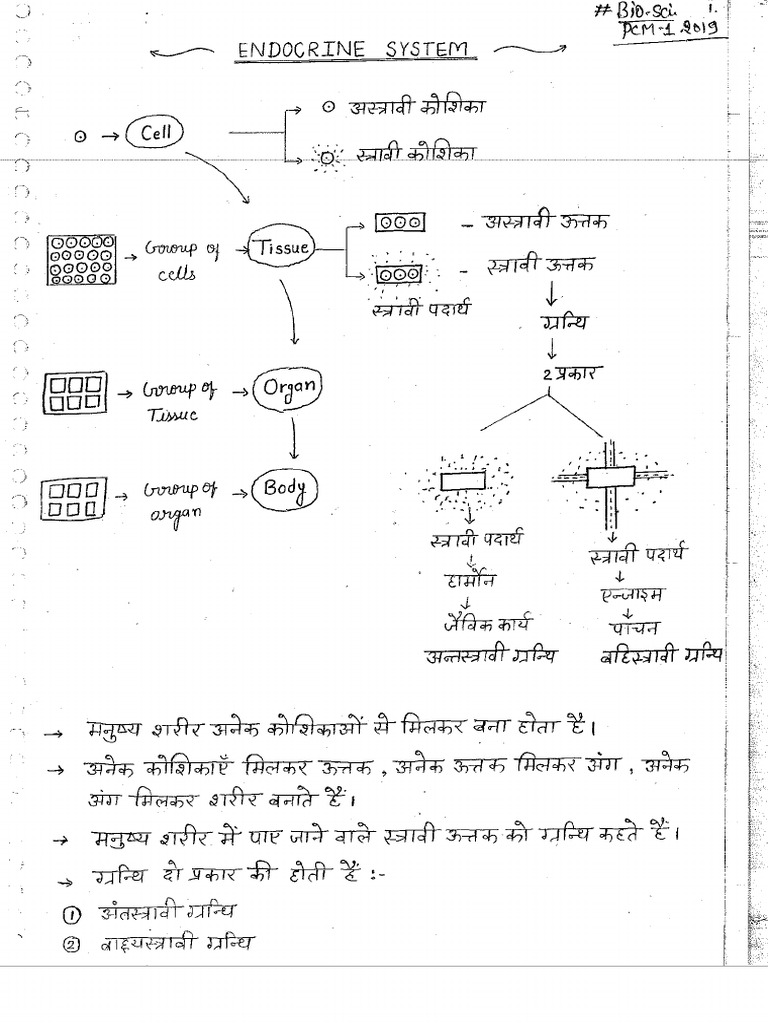 # Bio-Sci. 1.
PCM-1.2019
ENDOCRINE SYSTEM
Cell
अस्त्रावी कोशिका
स्त्रावी कोशिका
Group of cells
Tissue
अस्त्रावी ऊत्तक
स्त्रावी ऊत्तक
स्त्रावी पदार्थ
ग्रन्थि
2 प्रकार
Group of
Tissue
Organ
Group of
organ
Body
स्त्रावी पदार्थ
हार्मोन
जैविक कार्य
अन्तस्त्रावी ग्रन्थि
स्त्रावी पदार्थ
एन्जाइम
पाचन
बहिस्त्रावी ग्रन्थि
→ मनुष्य शरीर अनेक कोशिकाओं से मिलकर बना होता है।
→ अनेक कोशिकाएँ मिलकर ऊत्तक, अनेक ऊत्तक मिलकर अंग, अनेक
अंग मिलकर शरीर बनाते हैं।
→ मनुष्य शरीर में पाए जाने वाले स्त्रावी ऊत्तक को ग्रन्थि कहते हैं।
→ ग्रन्थि दो प्रकार की होती हैं :-
① अंतस्त्रावी ग्रन्थि
② बाह्यस्त्रावी ग्रन्थि